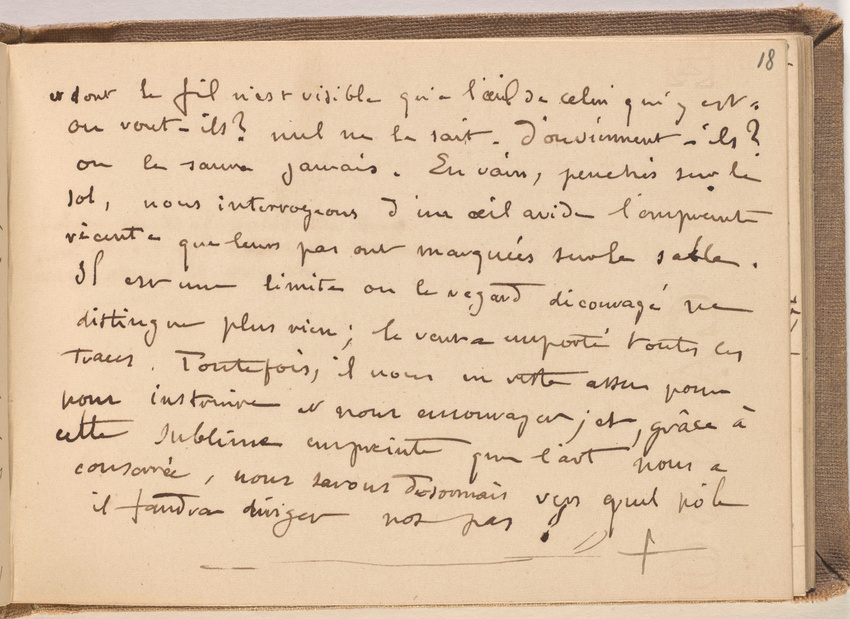 18
et dont le fil n'est visible qu'à l'œil de celui qui y est.
où vont-ils? nul ne le sait. d'où viennent-ils?
on le saura jamais. En vain, penchés sur le
sol, nous interrogeons d'un œil avide l'empreinte
récente que leurs pas ont marquées sur le sable.
Il est une limite où le regard découragé ne
distingue plus rien; le vent a emporté toutes ces
traces. Toutefois, il nous en reste assez pour
nous instruire et nous encourager; et, grâce à
cette sublime empreinte que l'art nous a
conservée, nous savons désormais vers quel pôle
il faudra diriger nos pas!